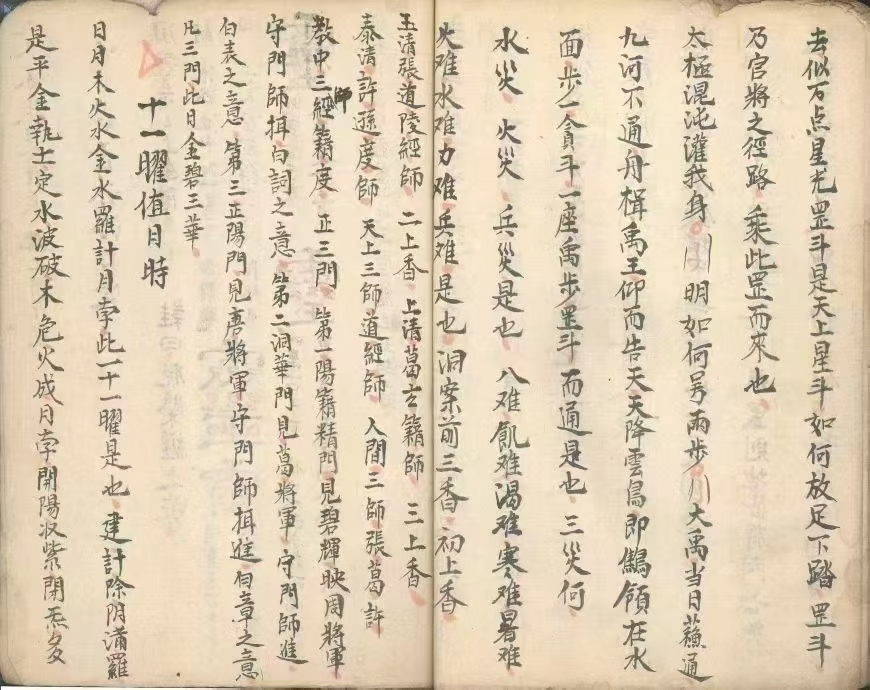 去似万点星光罡斗是天上星斗如何放足下踏 罡斗
乃官將之徑路 乘此罡而來也
太極混沌灌我身 明如何另兩步 大禹當日蘓通
九河不通舟楫禹王仰而告天天降雲鳥即鷦領在水
面步一貪斗一座禹步罡斗 而通是也 三災何
水災 火災 兵災是也 八难飢难渴难寒难暑难
火难水难力难兵难是也 洞案前三香 初上香
玉清張道陵經師 二上香 上清葛玄籍師 三上香
泰清許遜度師 天上三師道經師 人間三師張葛許
教中三經師籍度 正三門 第一陽籍精門見碧輝映周將軍
守門師揖白詞之意 第二洞華門見葛將軍守門師進
白表之意 第三正陽門見唐將軍守門師揖進白章之意
凡三門此日金碧三華
十一曜值日時
日月木火水金水羅計月孛此一十一曜是也 建計除阴滿羅
是平金執土定水波破木危火成月孛開陽收紫閉